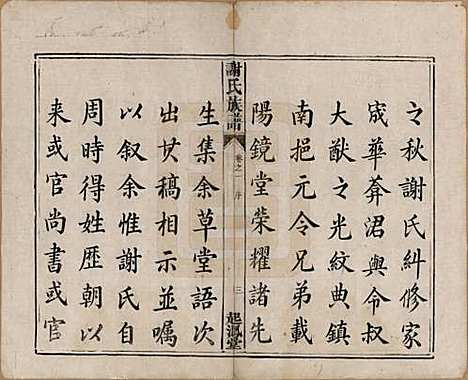 之秋謝氏糾修家
成華莾涒與令叔
大猷之光紋典鎮
南挹元令兄弟載
陽鏡堂榮耀諸先
謝氏族譜
卷之一 序 三
起鳳堂
生集余草堂語次
出其稿相示並囑
以叙余惟謝氏自
周時得姓歷朝以
来或官尚書或官